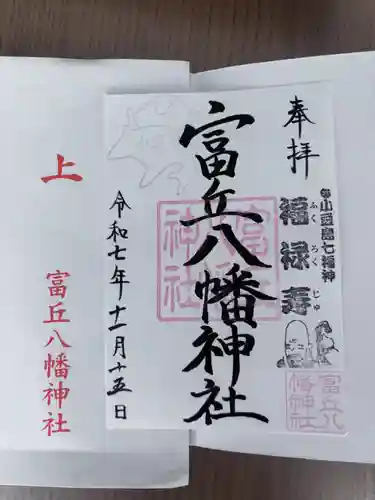 奉拝
小豆島七福神
福禄寿
ふくろくじゅ
富丘八幡神社
富丘八幡神社
富丘八幡神社
令和七年十一月十五日
上
富丘八幡神社